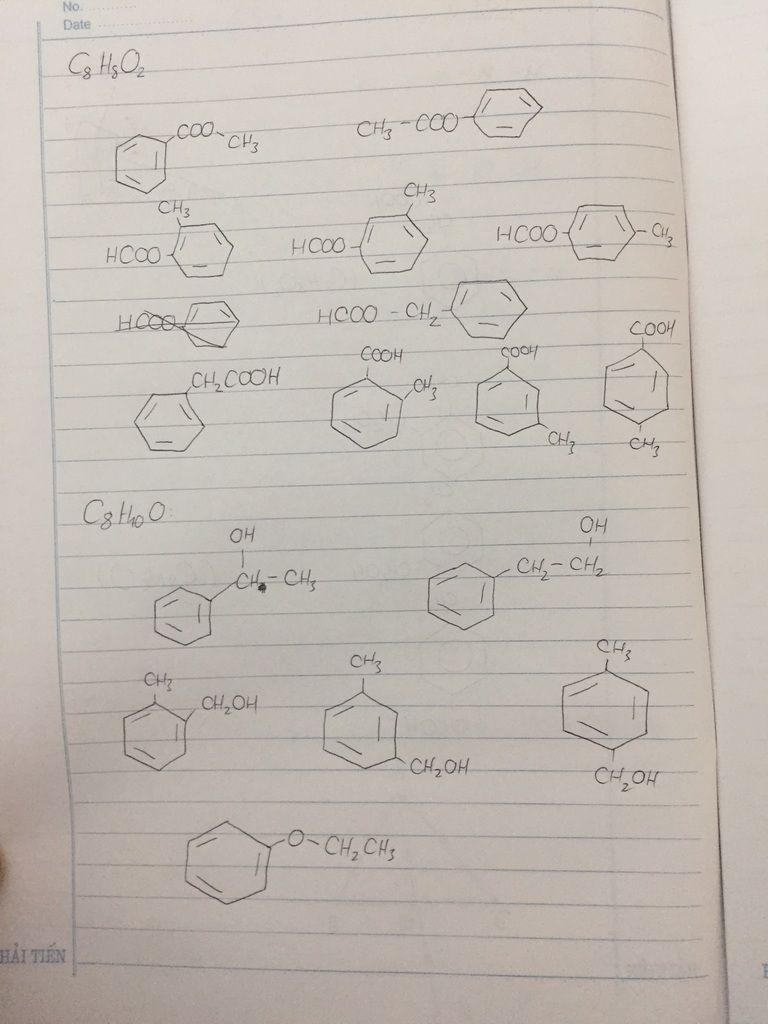 No.
Date
C8H8O2
COO-CH3
CH3-COO
CH3
CH3
HCOO
HCOO
HCOO
CH3
HCOO
HCOO-CH2
COOH
CH2COOH
COOH
CH3
COOH
CH3
CH3
C8H10O:
OH
CH-CH3
OH
CH2-CH2
CH3
CH2OH
CH3
CH2OH
CH3
CH2OH
O-CH2CH3
HẢI TIẾN